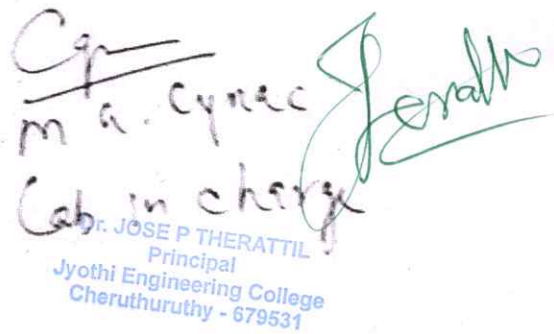 M a. Cyriac
Lab in charge
Dr. JOSE P THERATTIL
Principal
Jyothi Engineering College
Cheruthuruthy - 679531